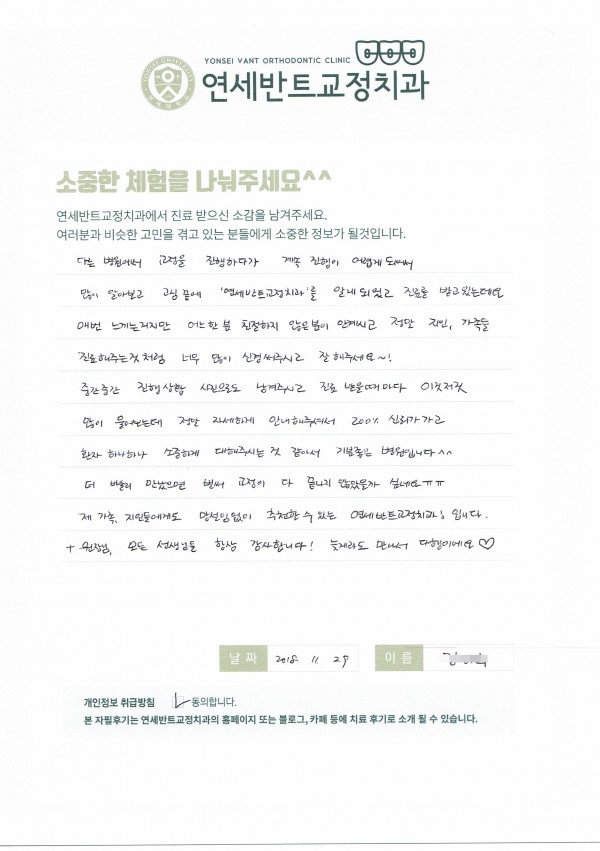 YONSEI VANT ORTHODONTIC CLINIC
연세반트교정치과
YONSEI UNIVERSITY
소중한 체험을 나눠주세요^^
연세반트교정치과에서 진료 받으신 소감을 남겨주세요.
여러분과 비슷한 고민을 겪고 있는 분들에게 소중한 정보가 될것입니다.
다른 병원에서 교정을 진행하다가 계속 진행이 어렵게 되어서
많이 알아보고 고심 끝에 '연세반트교정치과'를 알게 되었고 진료를 받고있는데요
매번 느끼는거지만 어느한 분 친절하지 않은분이 안계시고 정말 지인, 가족들
진료해주는것 처럼 너무 많이 신경써주시고 잘 해주세요~!
중간중간 진행상황 사진으로도 남겨주시고 진료 받을때 마다 이것저것
많이 물어보는데 정말 자세하게 안내해주셔서 200% 신뢰가 가고
환자 하나하나 소중하게 대해주시는 것 같아서 기분좋은 병원입니다^^
더 빨리 만났으면 벌써 교정이 다 끝나지 않았을까 싶네요ㅠㅠ
제 가족, 지인들에게도 망설임없이 추천할 수 있는 연세반트교정치과 입니다.
+ 원장님, 모든 선생님들 항상 감사합니다! 늦게라도 만나서 다행이에요♡
날짜 2018. 11. 29
이름
개인정보 취급방침 동의합니다.
본 자필후기는 연세반트교정치과의 홈페이지 또는 블로그, 카페 등에 치료 후기로 소개 될 수 있습니다.